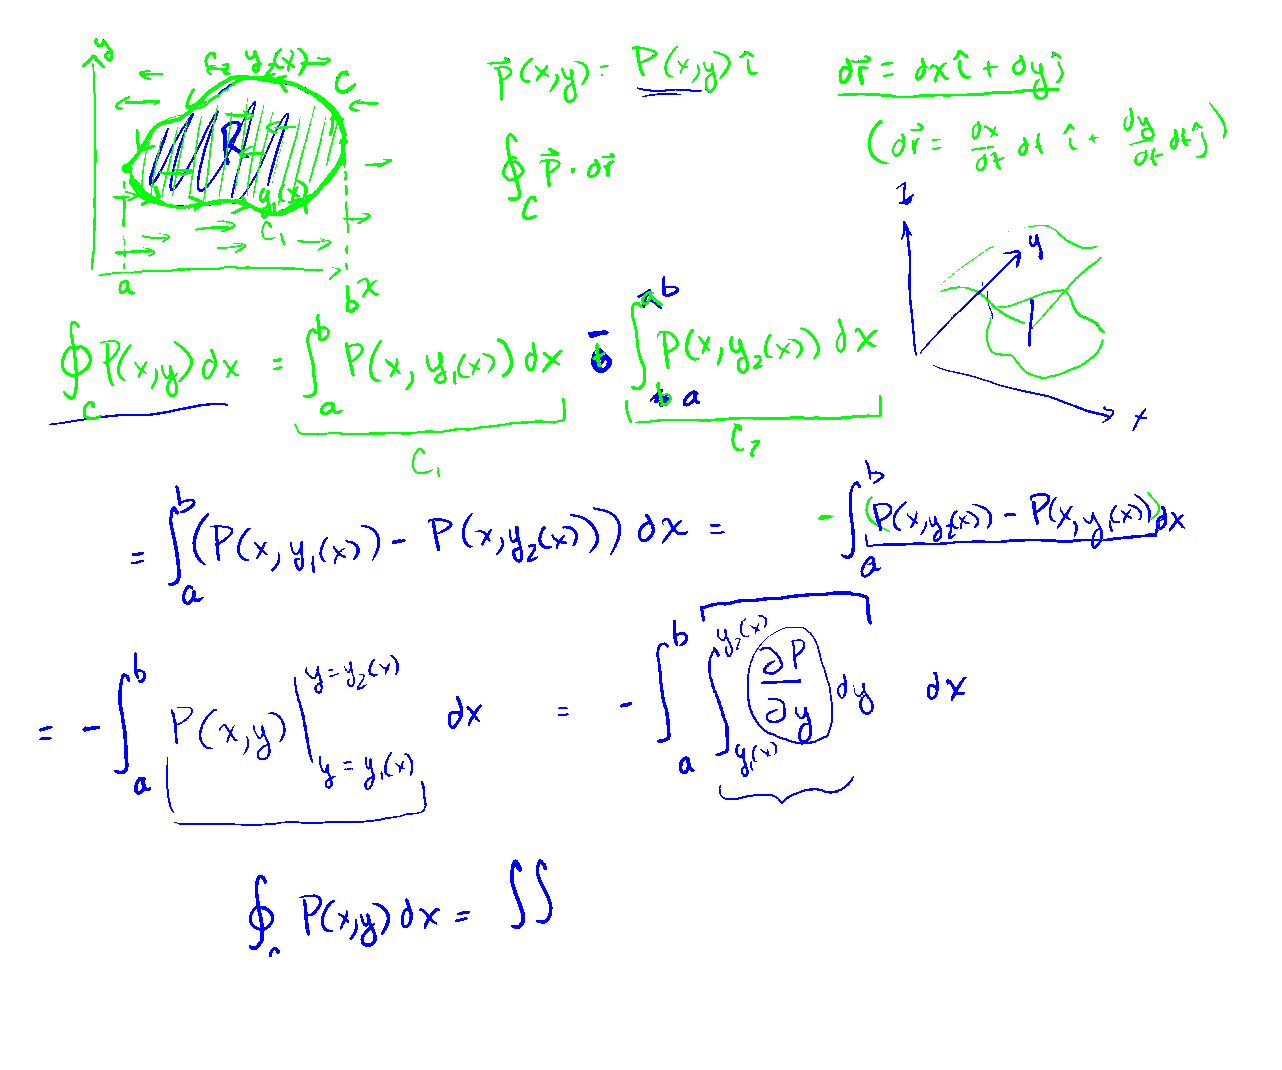 y
C₂ y₂(x)
C
R
y₁(x)
C₁
a
b x
p⃗(x,y) = P(x,y) î
dr⃗ = dx î + dy ĵ
(dr⃗ = dx/dt dt î + dy/dt dt ĵ)
∮_C p⃗ · dr⃗
z
y
x
∮_C P(x,y) dx = ∫_a^b P(x, y₁(x)) dx − ∫_a^b P(x, y₂(x)) dx
C₁
C₂
= ∫_a^b (P(x, y₁(x)) − P(x, y₂(x))) dx = − ∫_a^b (P(x, y₂(x)) − P(x, y₁(x))) dx
= − ∫_a^b P(x,y) |_{y = y₁(x)}^{y = y₂(x)} dx = − ∫_a^b ∫_{y₁(x)}^{y₂(x)} ∂P/∂y dy dx
∮_C P(x,y) dx = ∫∫